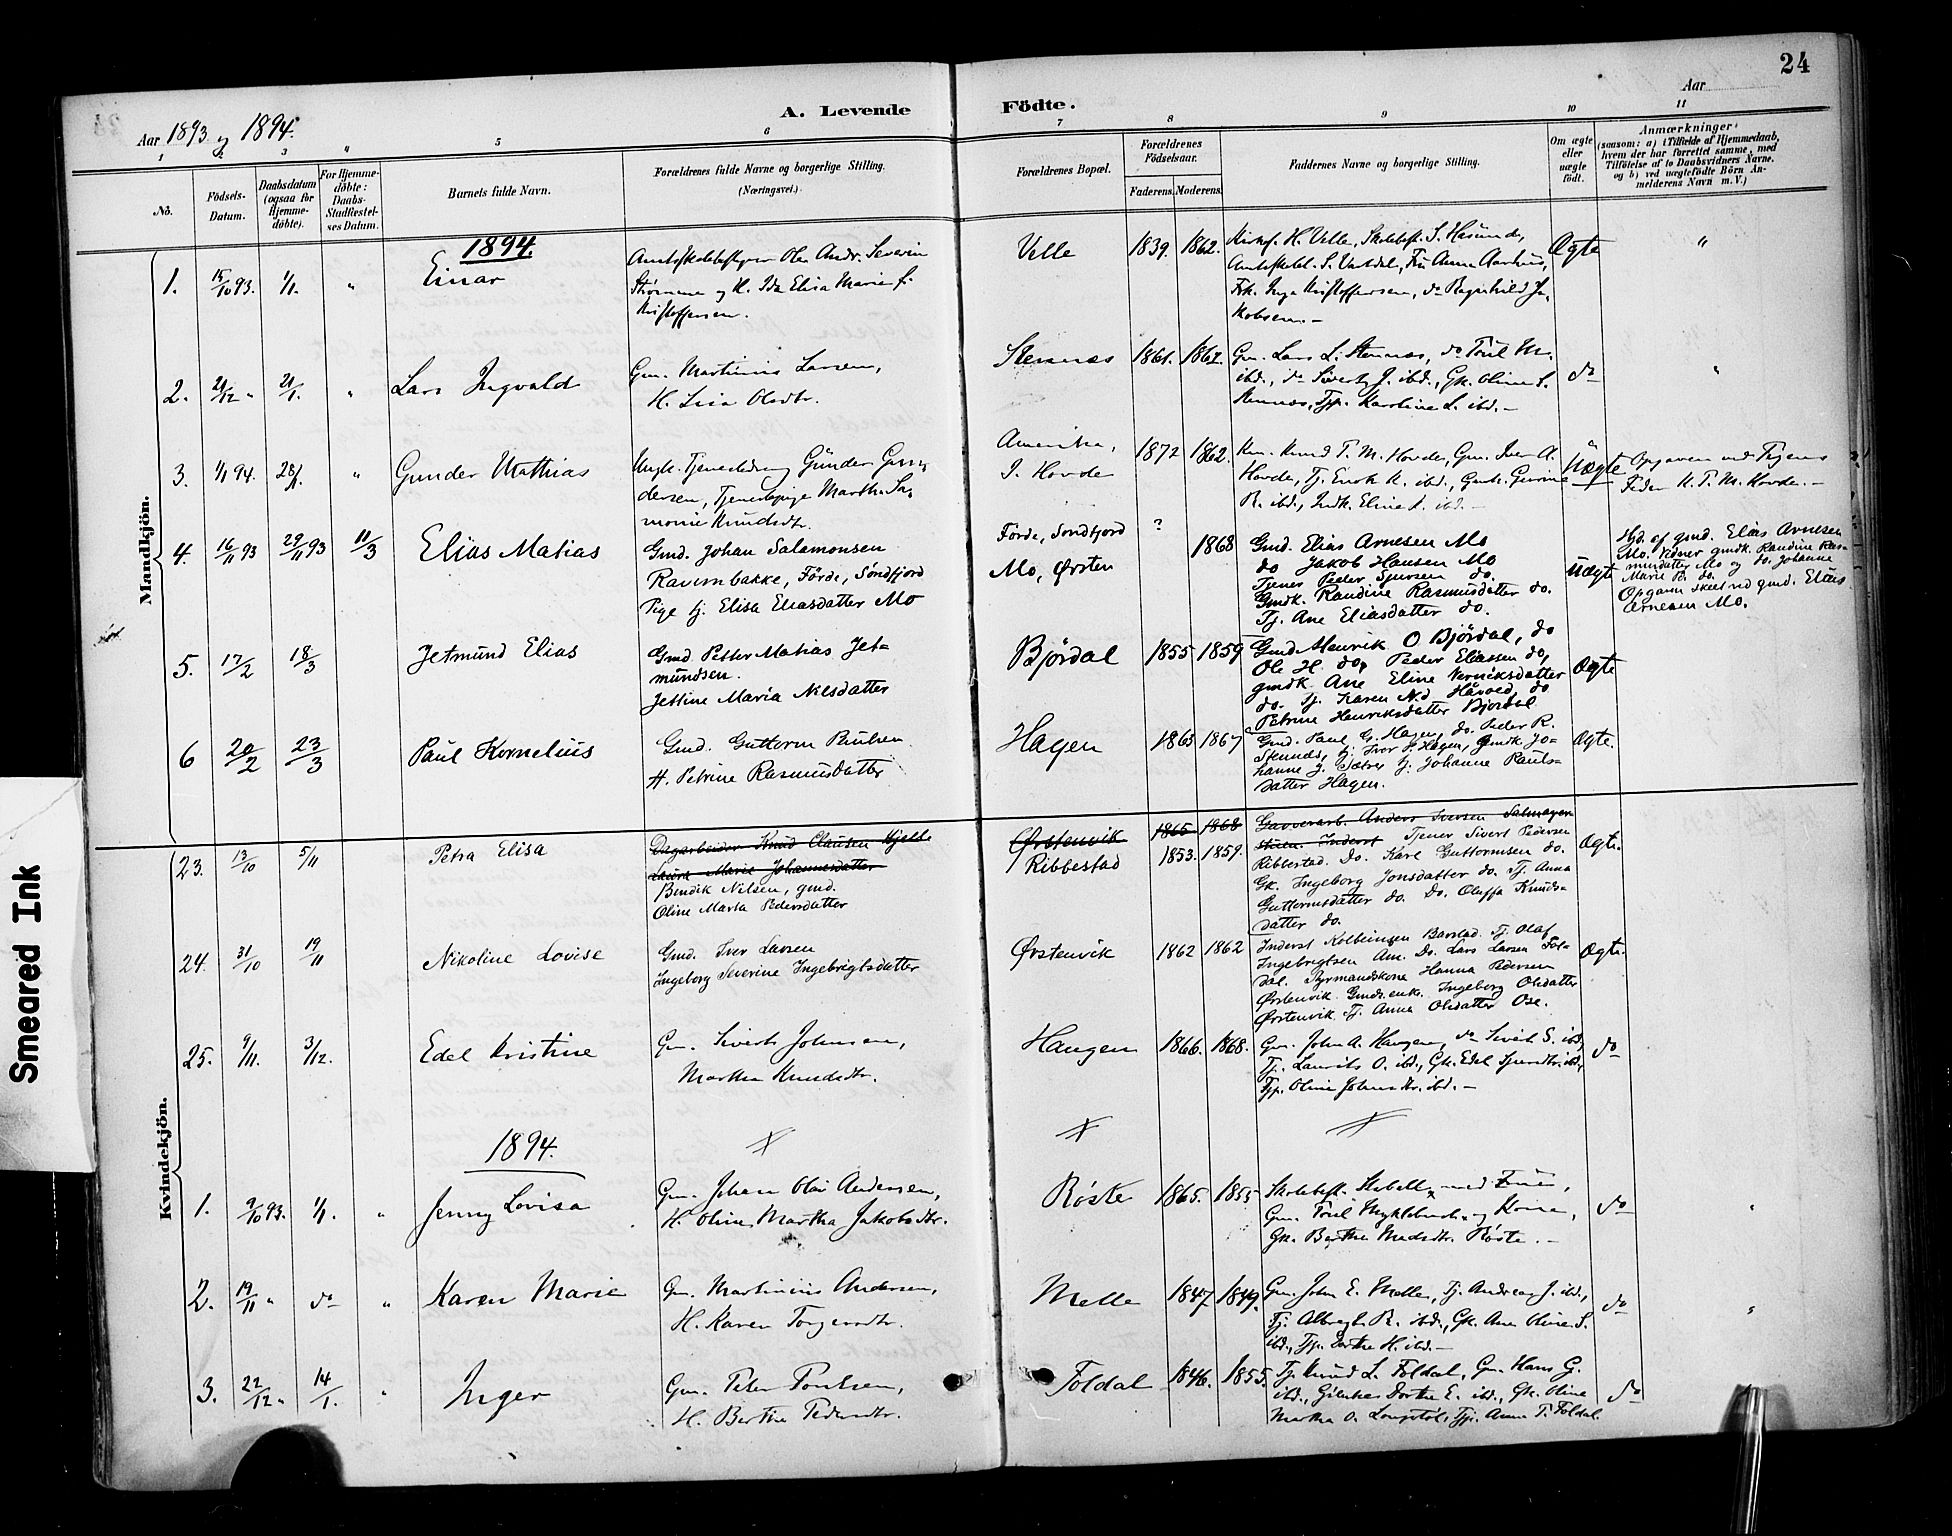 24
A. Levende Fødte.
Aar 1893 og 1894.
Aar
1 2 3 4 5 6 7 8 9 10 11
No.
Födsels-
Datum.
Daabsdatum
(ogsaa for
Hjemme-
döbte).
For Hjemme-
döbte:
Daabs-
Stadfæstel-
ses Datum.
Barnets fulde Navn.
Forældrenes fulde Navne og borgerlige Stilling.
(Næringsvei.)
Forældrenes Bopæl.
Forældrenes
Födselsaar.
Faderens. Moderens.
Faddernes Navne og borgerlige Stilling.
Om ægte
eller
uægte
födt.
Anmærkninger
(saasom: a) i Tilfælde af Hjemmedaab,
hvem der har forrettet samme, med
Tilföielse af to Daabsvidners Navne,
og b) ved uægtefödte Börn An-
melderens Navn m. V.)
Mandkjön.
1894.
1. 15/10 93. 1/1. "
Einar
Amtsskolebestyrer Ole Andr. Severin
Strømme og H. Ida Elisa Marie f.
Kristoffersen.
Velle
1839. 1862.
Kirkes. H. Velle, Skolebest. S. Hasund,
Amtsskolel. S. Vatdal, Fru Anna Aarhus,
Frk. Inga Kristoffersen, do Ragnhild Ja-
kobsen. -
Ægte
"
2. 21/12 " 21/1. "
Lars Ingvald
Gm. Martinus Larsen,
H. Lisa Olsdtr.
Stennæs
1861. 1862.
Gm. Lars L. Stennæs, do Poul M.
ibd., do Sivert J. ibd., Gk. Oline S.
Stennæs, Tjp. Karoline L. ibd. -
do
"
3. 1/1 94. 28/1. "
Gunder Mathias
Ungk. Tjenestedreng Günder Gun-
dersen, Tjenestepige Marthe Sa-
monie Knudsdtr.
Amerika,
I. Hovde
1872 1862.
Km. Knud T. M. Hovde, Gm. Iver A.
Hovde, Tj. Enok K. ibd., Gmk. Gurine
R. ibd., Indk. Eline L. ibd. -
Uægte
Opgaven ved Pigens
Fader K. T. M. Hovde. -
4. 16/11 93 29/11 93 11/3
Elias Matias
Gmd. Johan Salamonsen
Ravnnbakke, Förde, Söndfjord
Pige tj. Elisa Eliasdatter Mo
Förde, Söndfjord
Mo, Ørsten
? 1868
Gmd. Elias Arnesen Mo
do Jakob Hansen Mo
Tjener Peder Sjursen do.
Gmdk. Randine Rasmusdatter do.
Tj. Ane Eliasdatter do.
Uægte
Hjd. af gmd. Elias Arnesen
Mo. Vidner gmdk. Randine Ras-
musdatter Mo og do. Johanne
Marie P. do.
Opgaven skeet ved gmd. Elias
Arnesen Mo.
5. 17/2 18/3
Jetmund Elias
Gmd Petter Matias Jet-
mündsen.
Jettine Maria Nilsdatter
Bjørdal
1855 1859
Gmd Henrik O Bjørdal, do
Ole H. do, Peder Eliassen do,
gmdk. Ane Eline Henriksdatter
do. tj. Karen N.d. Håvoed, do
Petrine Henriksdatter Bjordal
Ægte
6 20/2 23/3
Paul Kornelius
Gmd. Guttorm Paulsen
H. Petrine Rasmusdatter
Hagen
1863 1867
Gmd. Paul G. Hagen, do. Peder R.
Iver P. Hagen, gmdk Jo-
hanne J. Sætre, tj. Johanne Pauls-
datter Hagen.
Ægte.
Kvindekjön.
23. 13/10 5/11
Petra Elisa
Dagarbeider Knud Clausen Hjelle
Laura Marie Johannesdatter
Bendik Nilsen, gmd.
Oline Marta Pedersdatter
Ørstenvik
Ribbestad
1865 1868
1853. 1859.
Garverarb. Anders Iversen Salmager
Inderst Tjener Sivert Pedersen
Ribbestad. Do. Karl Guttormsen do.
Gk. Ingeborg Jonsdatter do. Tj. Anna
Guttormsdatter do. Do. Oluffa Knuds-
datter do.
Ægte.
24. 31/10 19/11
Nikoline Lovise
Gmd. Iver Larsen
Ingeborg Severine Ingebrigtsdatter
Ørstenvik
1862 1862
Inderst Kolbeinsen Barstad. Tj. Olaf
Ingebrigtsen Am. Do. Lars Larsen Fol-
dal. Styrmandskone Hanna Pedersen
Ørstenvik. Gmds.enke. Ingeborg Olsdatter
Ørstenvik. Tj. Anna Olsdatter Ose.
Ægte.
25. 9/11. 3/12.
Edel Kristine
Gm. Sivert Johnsen,
Martha Knudsdtr.
Haugen
1866. 1868.
Gm. John A. Haugen, do Sivert S. ibd,
Tj. Laurits O. ibd., Gk. Edel Sjurdtr. ibd,
Tjp. Oline Johnsdtr. ibd. -
do
1894.
1. 9/10 93. 1/1. "
Jenny Lovisa
Gm. Johan Olai Andersen,
H. Oline Martha Jakobsdtr.
Röske
1865. 1855
Skolebest. med Frue,
Gm. Poul Myklebust og Kone,
Gk. Berthe Madsdtr. Röste. -
do
"
2. 19/11 " do "
Karen Marie
Gm. Martinius Andersen,
H. Karen Torgersdtr.
Melle
1847 1849.
Gm. John E. Melle, Tj. Andreas J. ibd.,
Tj. Albregt R. ibd., Gk. Ane Oline S.
ibd., Tjp. Dorthe H. ibd. -
do
"
3. 22/12 " 14/1. "
Inger
Gm. Peter Poulsen,
H. Berthe Pedersdtr.
Foldal
1846. 1855.
Tj. Knud L. Foldal, Gm. Hans G.
ibd., Dorthe E. ibd., Gk. Oline
Martha O. Tjp. Anne P. Foldal.
do
Smeared Ink